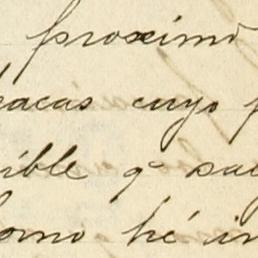 proximo
acas cuyo p
ible q sa
omo hé in